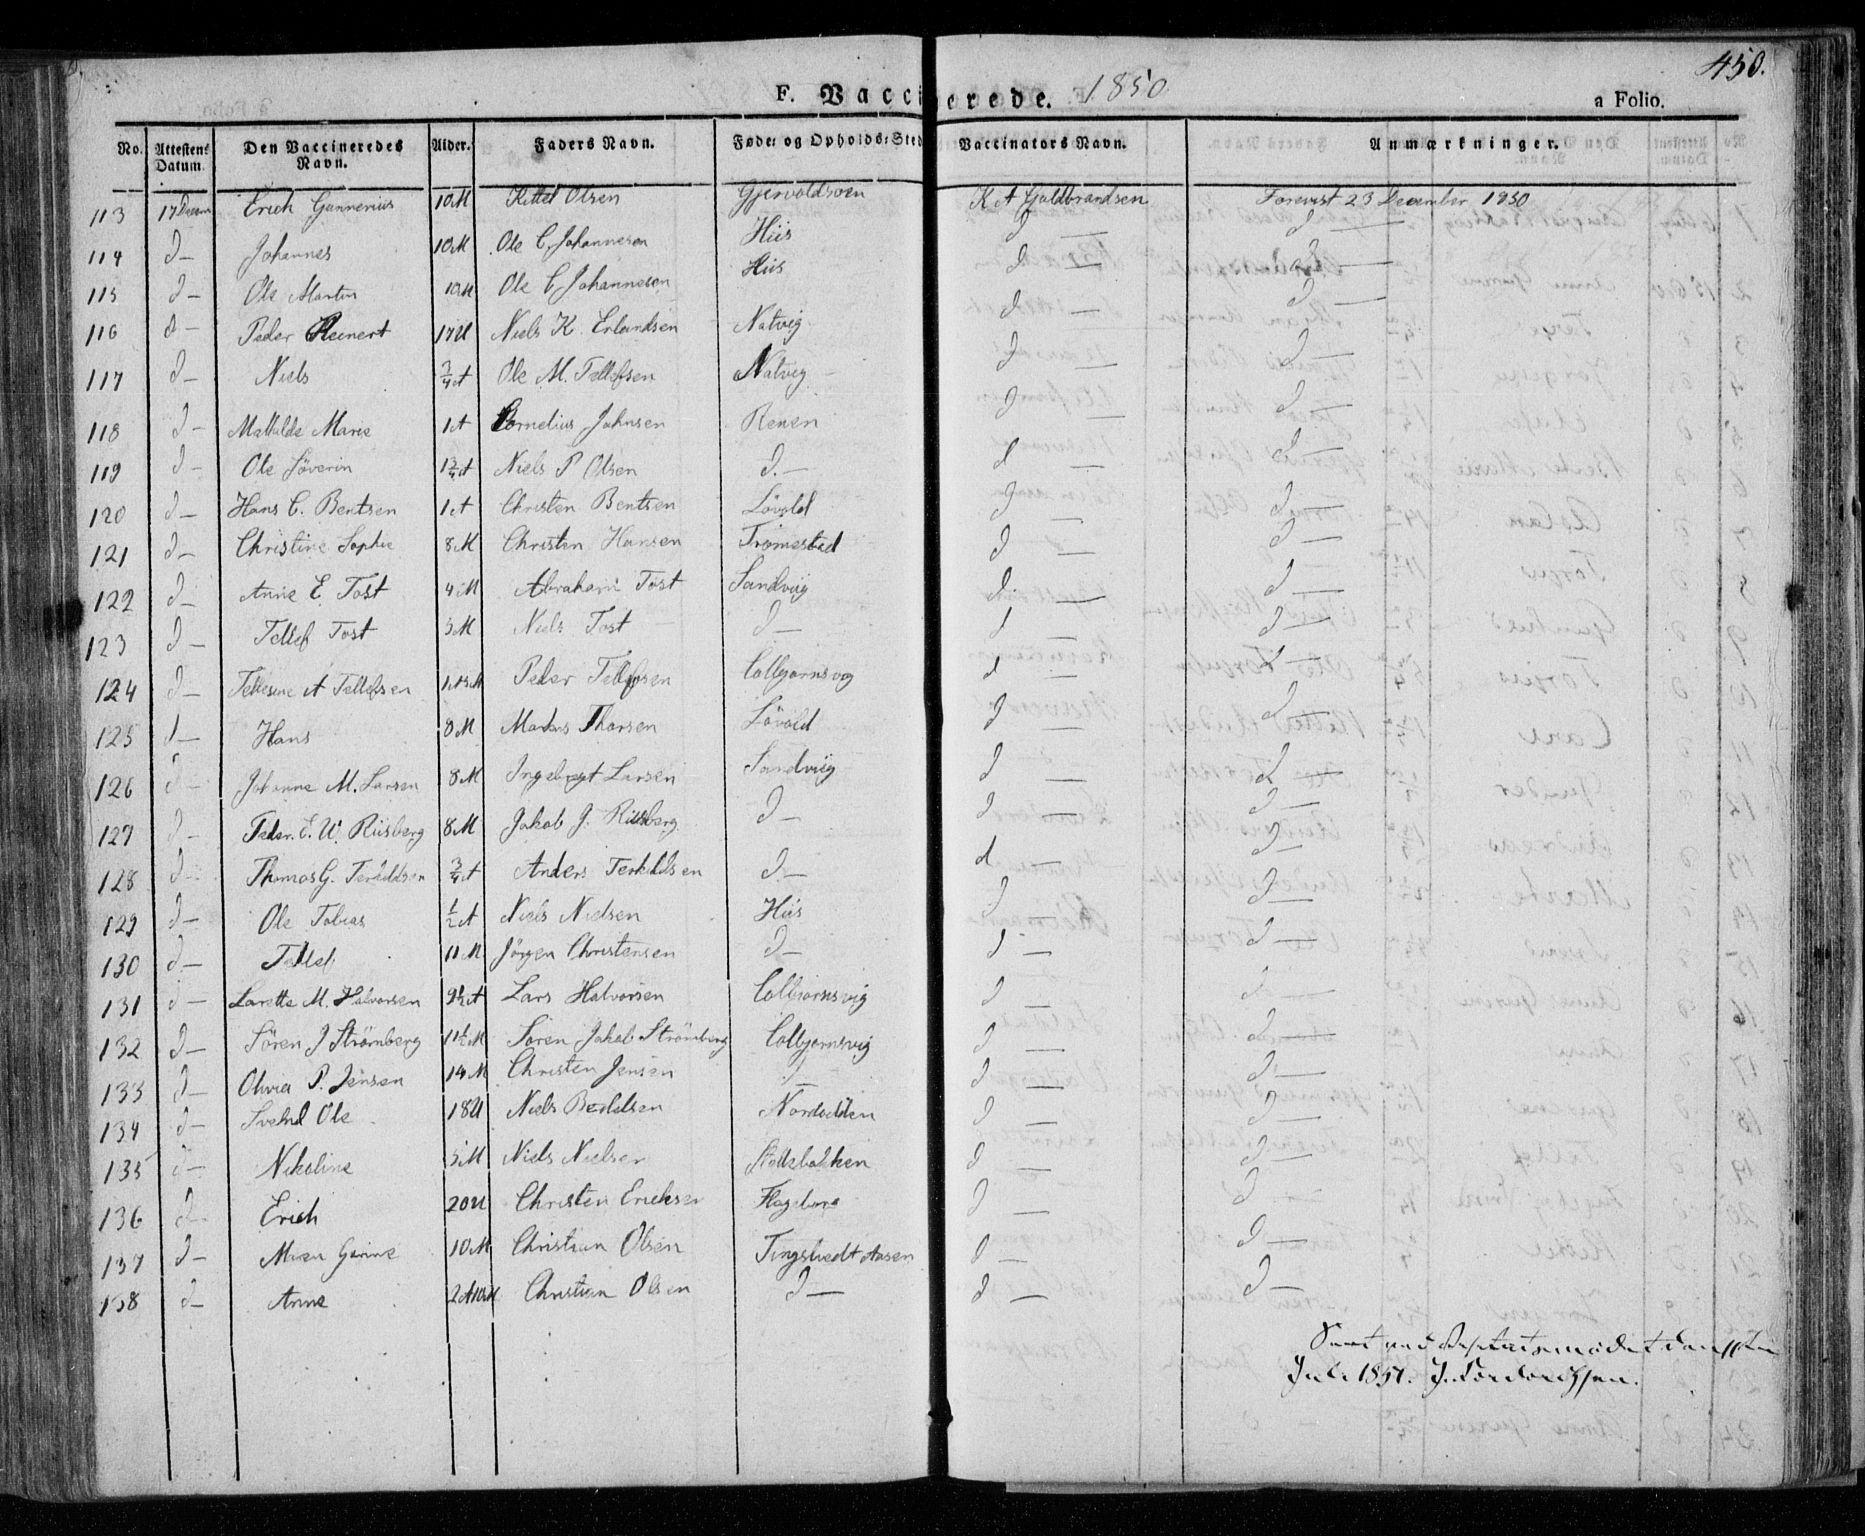 450.
F. Vaccinerede. 1850
a Folio.
No. Attestens Datum. Den Vaccineredes Navn. Alder. Faders Navn. Føde- og Opholds-Sted Vaccinators Navn. Anmærkninger.
113 17 Decem Erich Gunnerius 10 M Kittel Olsen Gjervoldsøen K A Guldbrandsen Forevist 23 December 1850
114 d — Johannes 10 M Ole C Johannesen Hiis d — d —
115 d — Ole Martin 10 M Ole C Johannesen Hiis d — d —
116 d — Peder Reinert 17 U Niels K. Erlandsen Natvig d — d —
117 d — Niels 3/4 A Ole M. Tellefsen Natvig d — d —
118 d — Mathilde Marie 1 A Cornelius Johnsen Renen d — d —
119 d — Ole Söverin 1 3/4 A Niels P Olsen d. — d — d —
120 d — Hans C. Bentsen 1 A Christen Bentsen Lövold d — d —
121 d — Christine Sophie 8 M Christen Hansen Tromestad d — d —
122 d — Anne E. Tost 4 M Abraham Tost Sandviig d. — d —
123 d — Tellef Tost 5 M Niels Tost d — d — d —
124 d — Tellesine A Tellefsen Peder Tellefsen Colbjørnsvig d — d —
125 d — Hans 8 M Markus Thorsen Lövold d — d —
126 d — Johanne M. Larsen 8 M Ingebregt Larsen Sandviig d — d —
127 d — Peder. E. W. Riisberg 8 M Jakob J. Riisberg d — d — d —
128 d — Thomas G. Terkildsen 3/4 A Anders Terkildsen d. — d — d —
129 d — Ole Tobias 1/2 A Niels Nielsen Hiis d — d —
130 d — Tellef 11 M Jörgen Christensen d — d — d —
131 d — Larette M. Halvorsen 9 1/2 A Lars Halvorsen Colbjornsvig d — d —
132 d — Sören J Strømberg 11 1/2 M Soren Jakob Strömberg Colbjornsvig d — d —
133 d — Olivia P. Jensen 14 M Christen Jensen d — d — d —
134 d — Svend Ole 18 U Niels Bendtsen Nordodden d — d —
135 d — Nikoline 5 M Niels Nielsen Stølebakken d — d —
136 d — Erich 20 U Christen Ericksen d — d —
137 d — Maren Gurine 10 M Christian Olsen Tingstvedt Aasen d — d —
138 d — Anne 2 A 10 M Christian Olsen d — d — d —
Juli 1851.